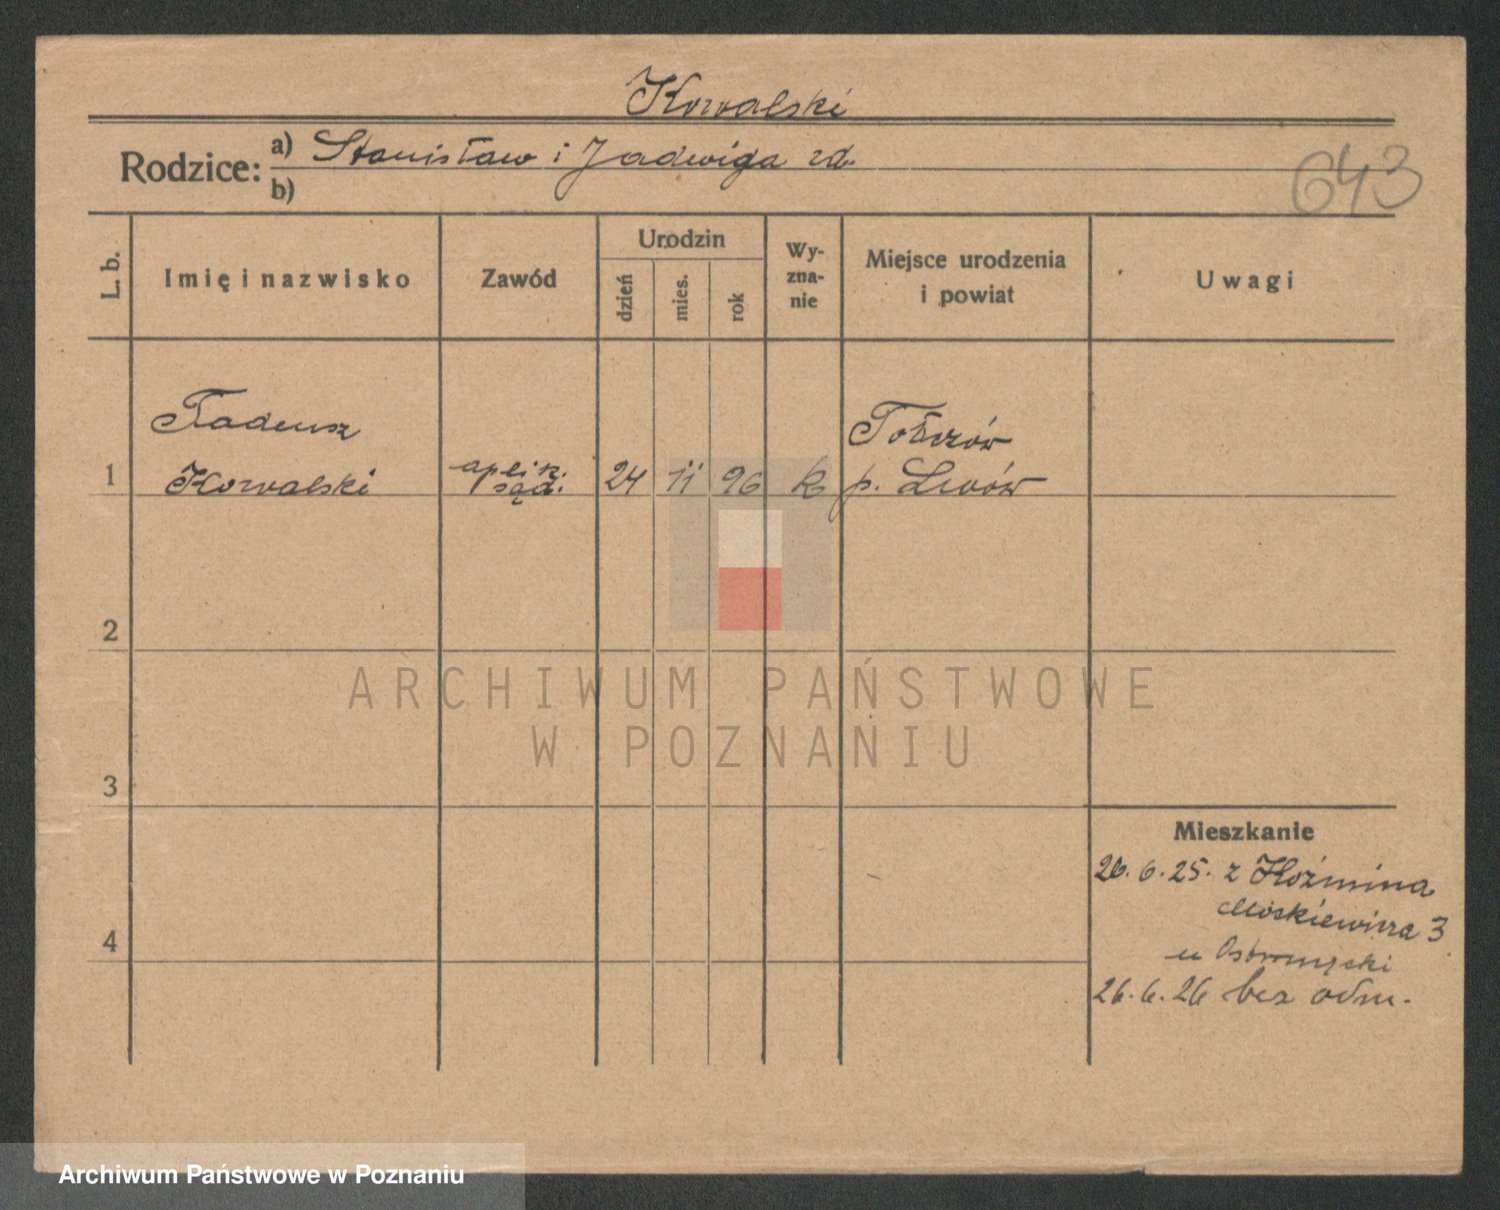 Kowalski
Rodzice: a) Stanisław i Jadwiga zd.
b)
643
L. b.
Imię i nazwisko
Zawód
Urodzin
dzień
mies.
rok
Wy-
zna-
nie
Miejsce urodzenia
i powiat
Uwagi
Tadeusz
1 Kowalski
aplik.
sąd.
24 11 96 k
p. Lwów
2
3
4
ARCHIWUM PAŃSTWOWE
W POZNANIU
Mieszkanie
26.6.25. z Koźmina
3
u
26.6.26 bez odm.
Archiwum Państwowe w Poznaniu